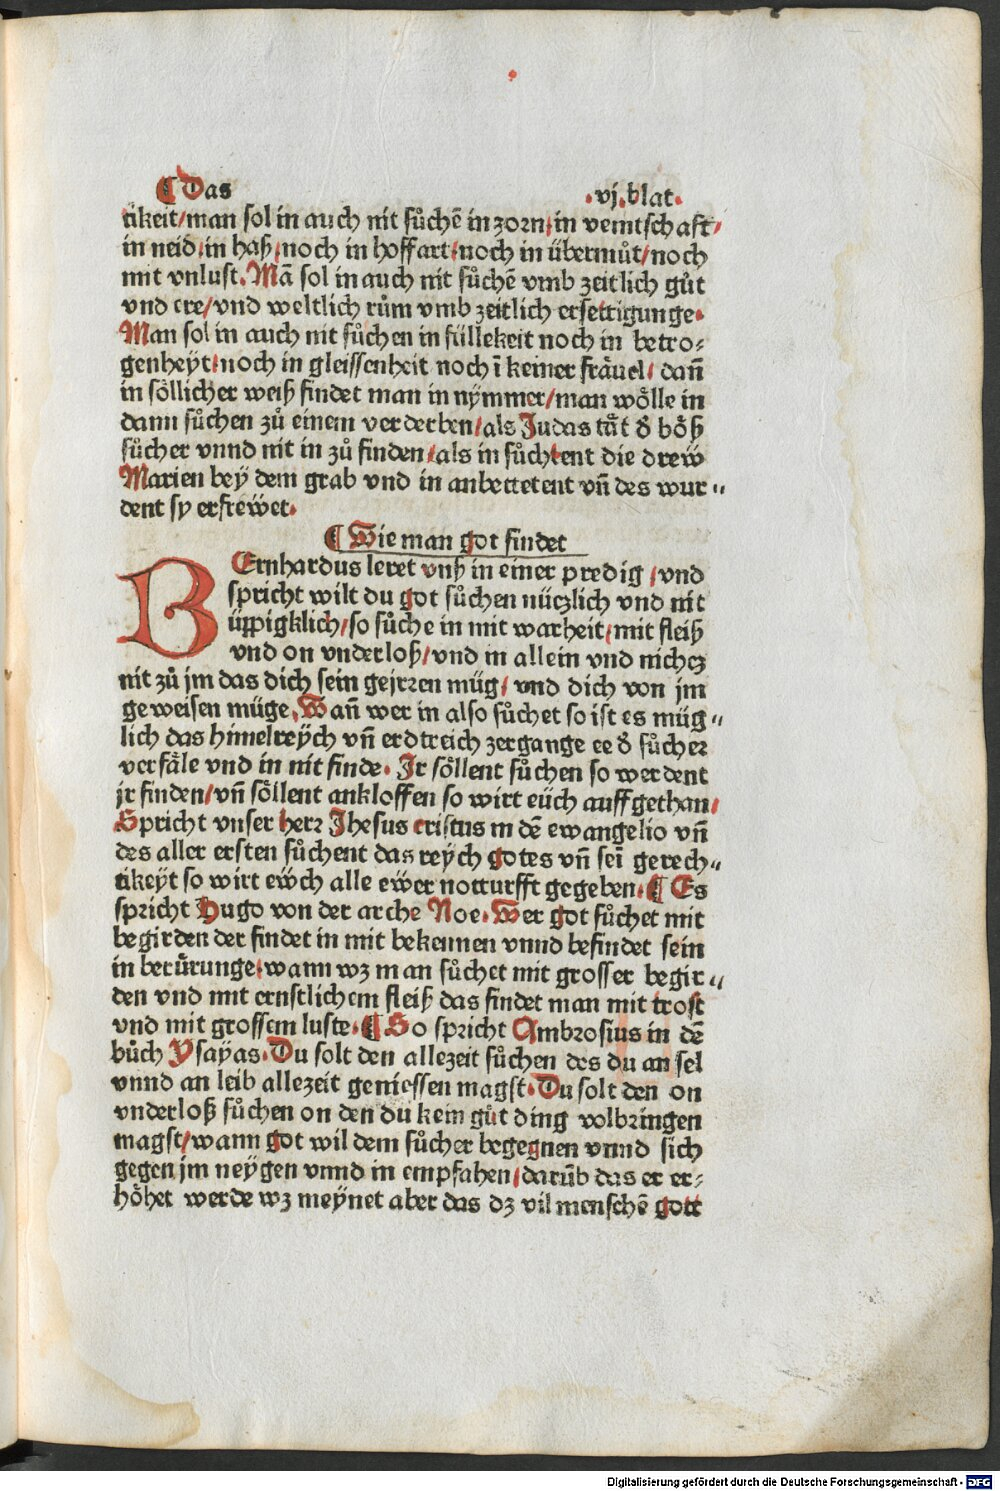 ¶ Das .vj.blat.
tikeit/man sol in auch nit sůchē in zorn/in veintschaft/
in neid/in haß/noch in hoffart/noch in übermůt/noch
mit vnlust. Mā sol in auch nit sůchē vmb zeitlich gůt
vnd ere/vnd weltlich rům vmb zeitlich ersettigunge.
Man sol in auch nit sůchen in füllekeit noch in betro⸗
genheyt/noch in gleissenheit noch ī keiner fräuel/ dañ
in söllicher weiß findet man in nymmer/man wölle in
dann sůchen zů einem verderben/als Judas tät d̕ böß
sůcher vnnd nit in zů finden/als in sůchtent die drew̎
Marien bey dem grab vnd in anbettetent vñ des wur⸗
dent sy erfrew̎et.
¶ Wie man got findet
BErnhardus leret vnß in einer predig/vnd
spricht wilt du got sůchen nüczlich vnd nit
üppigklich/so sůche in mit warheit/mit fleiß
vnd on vnderloß/vnd in allein vnd nichcz
nit zů jm das dich sein gejrren müg/ vnd dich von jm
geweisen müge. Wañ wer in also sůchet so ist es müg⸗
lich das himelreych vñ erdtreich zergange ee d̕ sůcher
verfäle vnd in nit finde. Jr söllent sůchen so werdent
jr finden/vñ söllent ankloffen so wirt eüch auffgethan/
Spricht vnser herr Jhesus cristus in dē ewangelio vñ
des aller ersten sůchent das reych gotes vñ seī gerech⸗
tikeyt so wirt ew̎ch alle ew̎er notturfft gegeben. ¶ Es
spricht Hugo von der arche Noe. Wer got sůchet mit
begirden der findet in mit bekennen vnnd befindet sein
in berürunge/wann wz man sůchet mit grosser begir⸗
den vnd mit ernstlichem fleiß das findet man mit trost
vnd mit grossem luste. ¶ So spricht Ambrosius in dē
bůch Ysayas. Du solt den allezeit sůchen des du an sel
vnnd an leib allezeit geniessen magst. Du solt den on
vnderloß sůchen on den du kein gůt ding volbringen
magst/wann got wil dem sůcher begegnen vnnd sich
gegen jm neygen vnnd in empfahen/darūb das er er⸗
höhet werde wz meynet aber das dz vil menschē gott
Digitalisierung gefördert durch die Deutsche Forschungsgemeinschaft - DFG